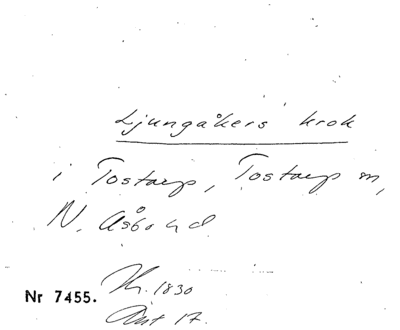 Ljungåkers krok
i Tostarp, Tostarp m,
N. Åsbo hd
Nr 7455. Kr. 1830
Ant 17.